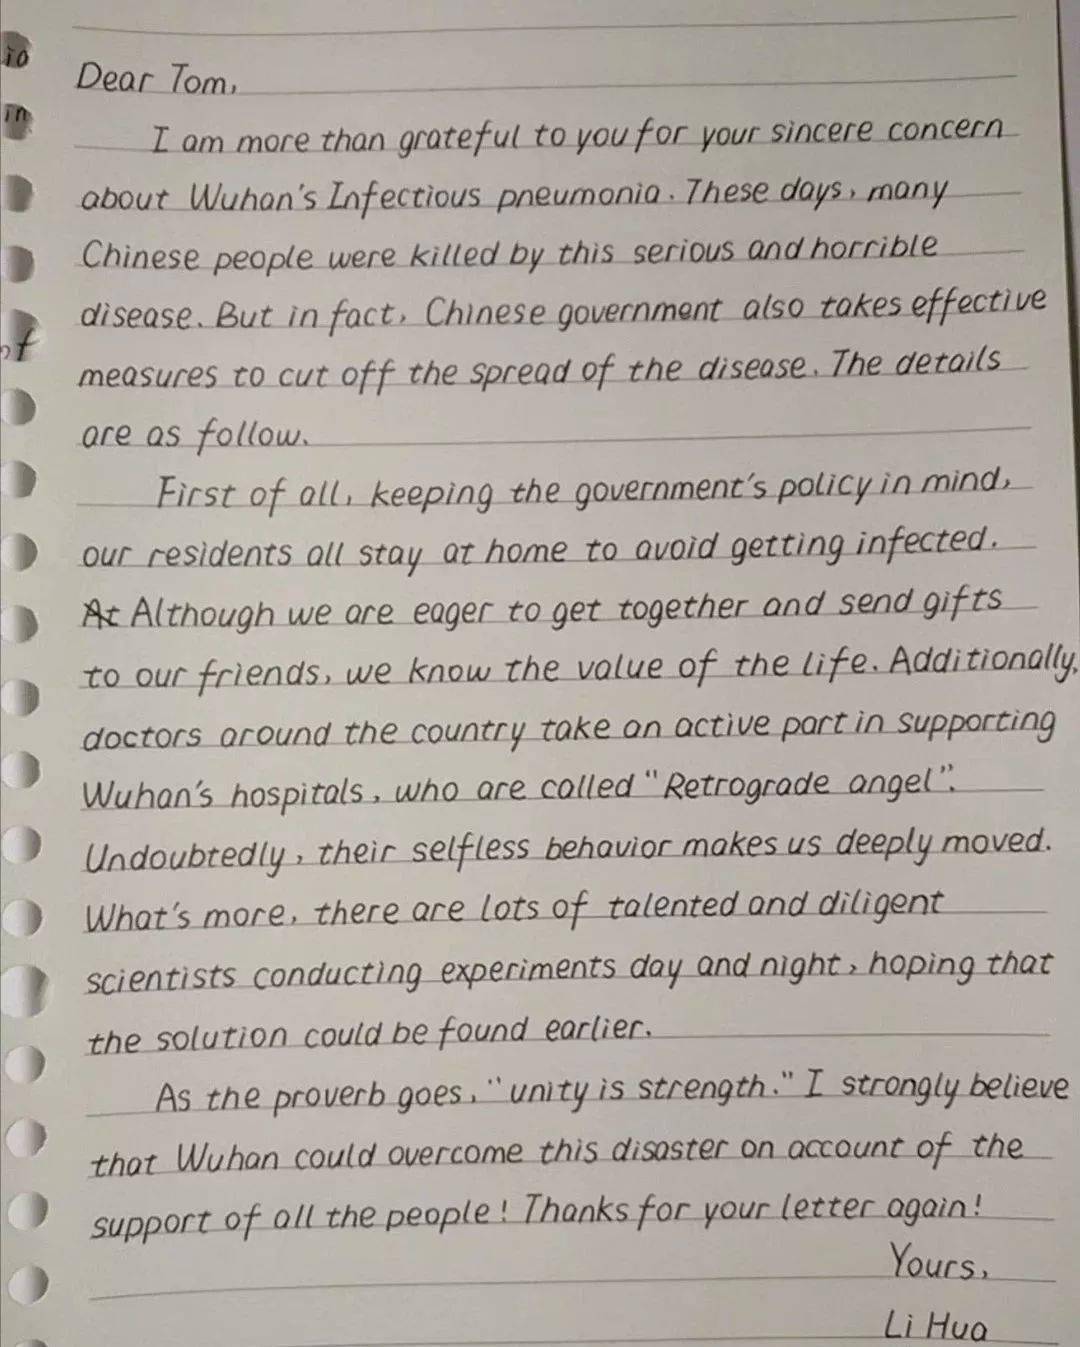 Dear Tom,
I am more than grateful to you for your sincere concern
about Wuhan's Infectious pneumonia. These days, many
Chinese people were killed by this serious and horrible
disease. But in fact, Chinese government also takes effective
measures to cut off the spread of the disease. The details
are as follow.
First of all, keeping the government's policy in mind,
our residents all stay at home to avoid getting infected.
At Although we are eager to get together and send gifts
to our friends, we know the value of the life. Additionally,
doctors around the country take an active part in supporting
Wuhan's hospitals, who are called "Retrograde angel".
Undoubtedly, their selfless behavior makes us deeply moved.
What's more, there are lots of talented and diligent
scientists conducting experiments day and night, hoping that
the solution could be found earlier.
As the proverb goes, "unity is strength." I strongly believe
that Wuhan could overcome this disaster on account of the
support of all the people! Thanks for your letter again!
Yours,
Li Hua